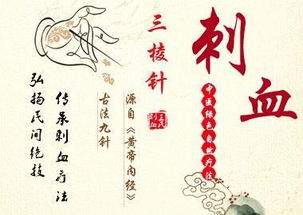 刺血
中医绿色自然疗法
三棱针
源自《黄帝内经》
古法九针
传承刺血疗法
弘扬民间绝技